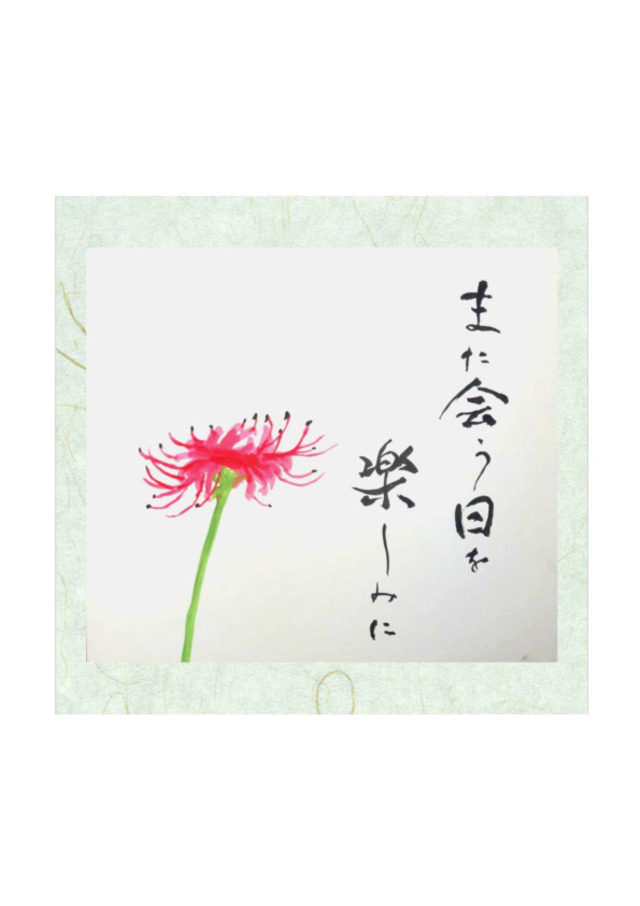 また会う日を
楽しみに